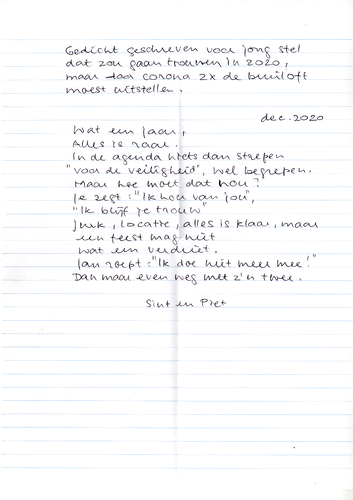 Gedicht geschreven voor jong stel
dat zou gaan trouwen in 2020,
maar door corona 2x de bruiloft
moest uitstellen.
dec. 2020
Wat een jaar,
Alles is raar.
In de agenda niets dan strepen
"voor de veiligheid", wel begrepen.
Maar hoe moet dat nou?
Je zegt: "Ik hou van jou",
"Ik blijf je trouw"
Jurk, locatie, alles is klaar, maar
een feest mag niet
wat een verdriet.
Jan roept: "Ik doe niet meer mee!"
Dan maar even weg met z'n twee.
Sint en Piet